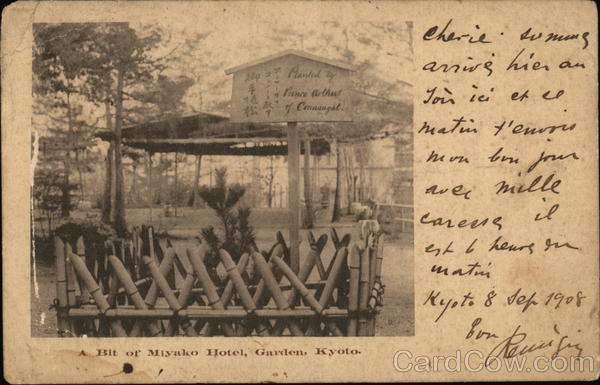 Planted by
Prince Arthur
of Connaught.
A Bit of Miyako Hotel, Garden, Kyoto.
Cherie sommes
arrivés hier au
soir ici et ce
matin t'envois
mon bon jour
avec mille
caresses il
est 6 heures du
matin
Kyoto 8 Sep 1908
ton
CardCow.com